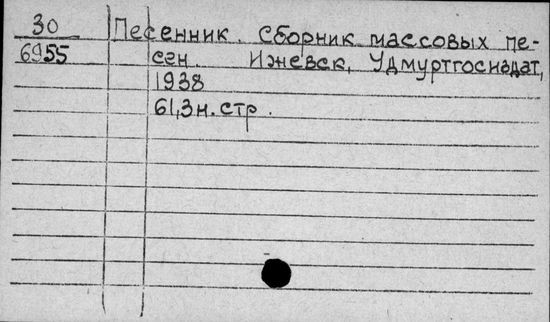 30 Песенник. Сборник массовых пе-
6955 сен. Ижевск, Удмуртгосиздат,
1938
61,3н.стр.